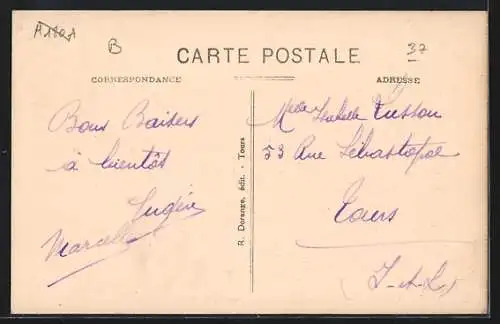 B
37
CARTE POSTALE
CORRESPONDANCE
ADRESSE
Bons Baisers
à bientôt
Marcelle
R. Dorange, édit. - Tours
Melle Isabelle Cusson
53 Rue Sébastopol
Tours
(I-et-L)